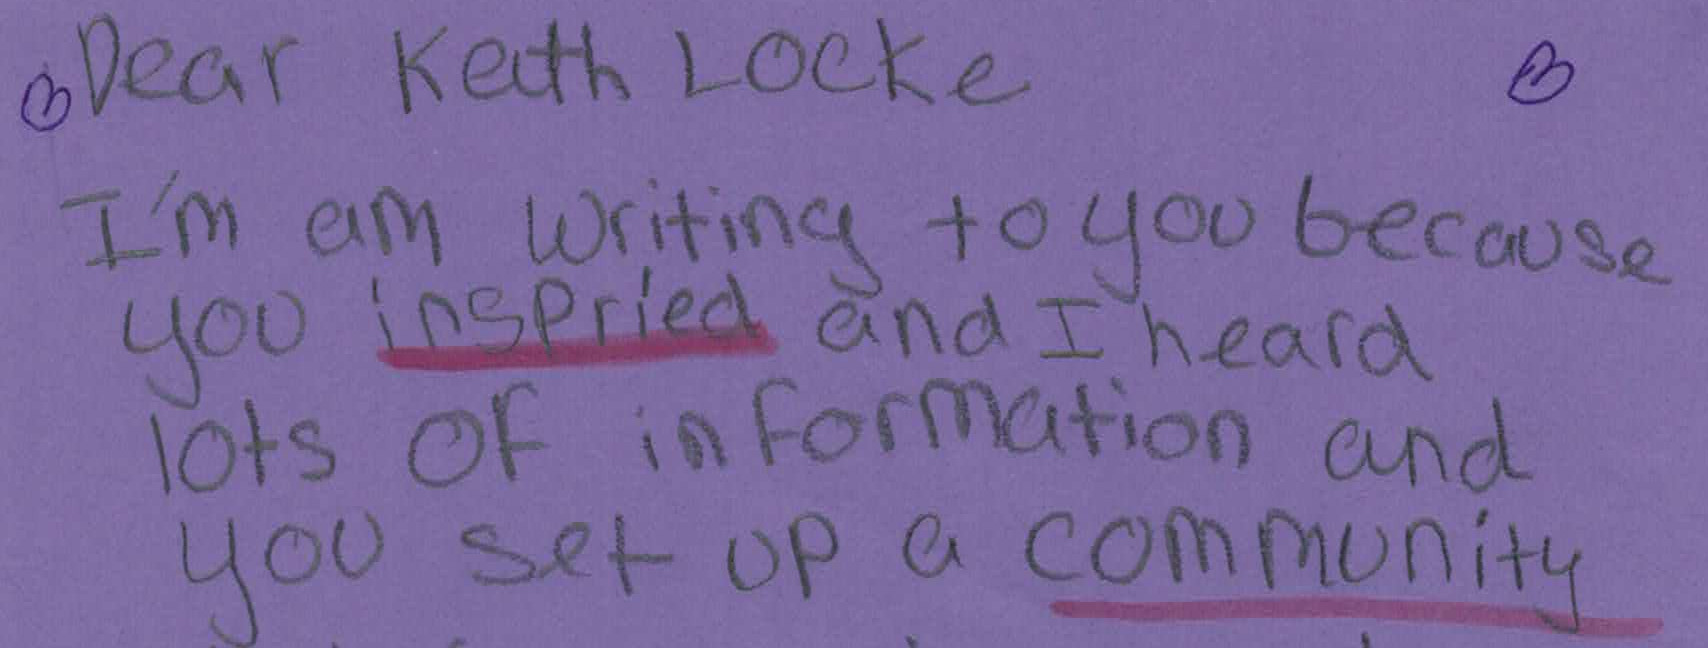 Dear Keith Locke
I'm am writing to you because
you inspried and I heard
lots of information and
you set up a community